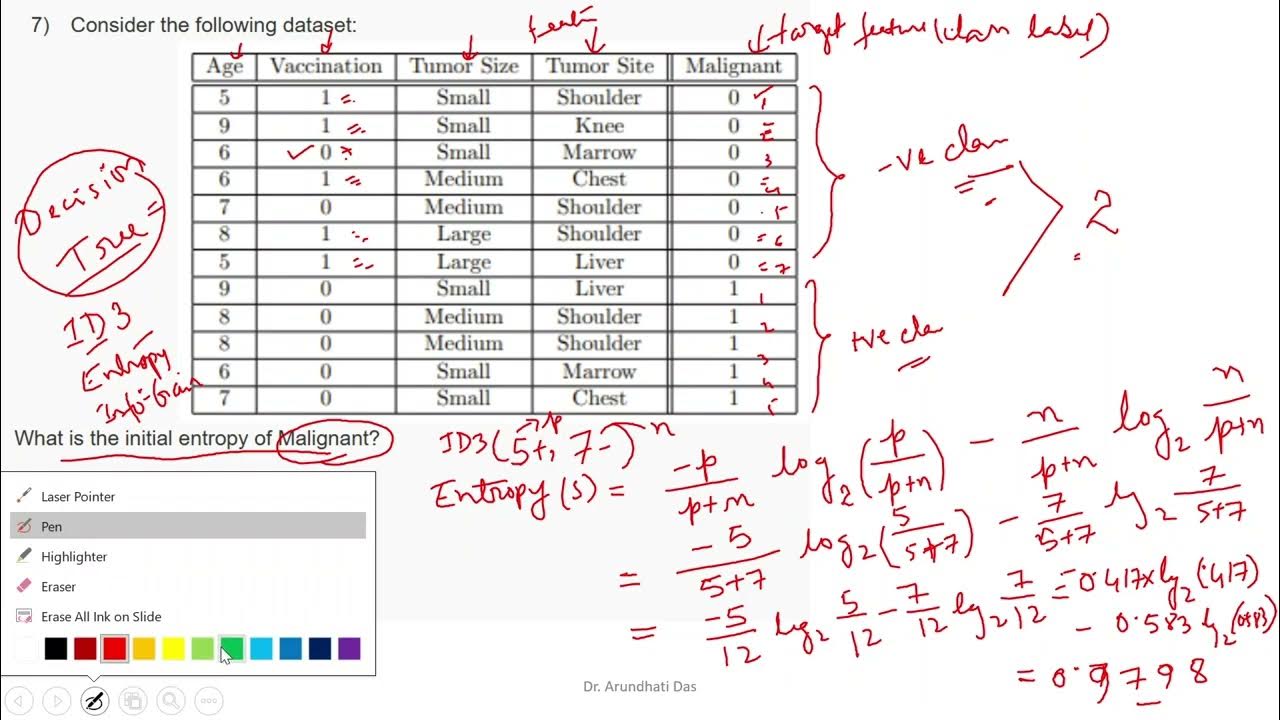 7) Consider the following dataset:
target feature (class label)
Age Vaccination Tumor Size Tumor Site Malignant
5 1 Small Shoulder 0 1
9 1 Small Knee 0 2
6 0 Small Marrow 0 3
6 1 Medium Chest 0 4
7 0 Medium Shoulder 0 5
8 1 Large Shoulder 0 6
5 1 Large Liver 0 7
9 0 Small Liver 1 1
8 0 Medium Shoulder 1 2
8 0 Medium Shoulder 1 3
6 0 Small Marrow 1 4
7 0 Small Chest 1 5
-ve class
2
+ve class
Decision
Tree
ID3
Entropy
Info-Gain
What is the initial entropy of Malignant?
ID3 (5+, 7-)
p n
Entropy (S) = -p/p+n log2 (p/p+n) - n/p+n log2 n/p+n
= -5/5+7 log2 (5/5+7) - 7/5+7 lg2 7/5+7
= -5/12 log2 5/12 - 7/12 lg2 7/12 = -0.417x lg2 (.417)
- 0.583 lg2 (0.583)
= 0.9798
Laser Pointer
Pen
Highlighter
Eraser
Erase All Ink on Slide
Dr. Arundhati Das